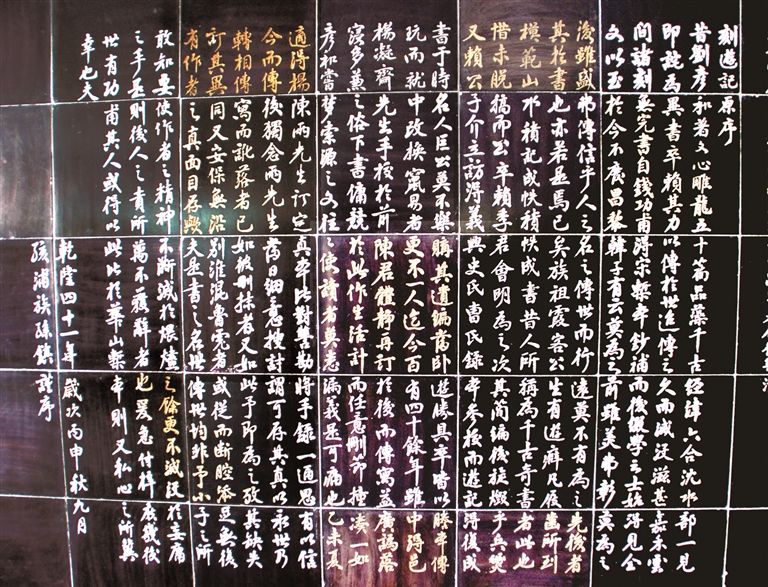 刻遊記原序
昔劉彥和著文心雕龍五十篇品藻千古經緯六合沈水部一見
即詫為異書卒賴其力以傳於世迨傳之久而滅沒滋甚嘉禾雲
間諸刻無完書自錢功甫得宋槧本鈔補而後綴學之士始得見全
文以至於今不廢昌黎韓子有云莫為之前雖美弗彰莫為之
後雖盛弗傳信乎人之名之傳世而行遠莫不有為之先後者
其於書也亦若是焉已矣族祖霞客公生有遊癖凡屐齒所到
模範山水積記成帙積帙成書昔人所稱為千古奇書者此也
惜未脫稿而公卒賴季君會明為之次其簡編後旋燬乎兵燹
又賴公子介立訪得義興史氏曹氏錄本參校而遊記得復成
書于時名人巨公莫不樂購其遺編為臥遊勝具卒皆以贋本傳
玩而就中改換竄易者更不一人迄今百有四十餘年雖中得邑
楊凝齋先生手校於前陳君體靜再訂於後而傳寫益廣譌落
寖多兼之俗下書傭競於此作生活計而任意刪節種湊一如
彥和當夢索源之文往之使讀者莫悉端義是可痛也己未夏
適得楊陳兩先生訂定真本比對讐勘將手錄一通思有以信
今而傳後獨念兩先生當日細意搜討謂可存其真以永世乃
轉相傳寫而訛落者已如彼刪抹者又如此予即為之考其缺失
訂其異同又安保無沿別淮混魯亮者或從而斷腔笨足無後
有作者之真面目存歟夫是書之名世傳世均非予小子之所
敢知要使作者之精神不澌滅於煨燼之餘更不滅沒於妄庸
之手是則後人之責所萬不獲辭者也爰急付梓庶幾後
世有功甫其人或得以此比於華山槧本則又私心之所冀
幸也夫
乾隆四十一年歲次丙申秋九月
族孫鎮謹序